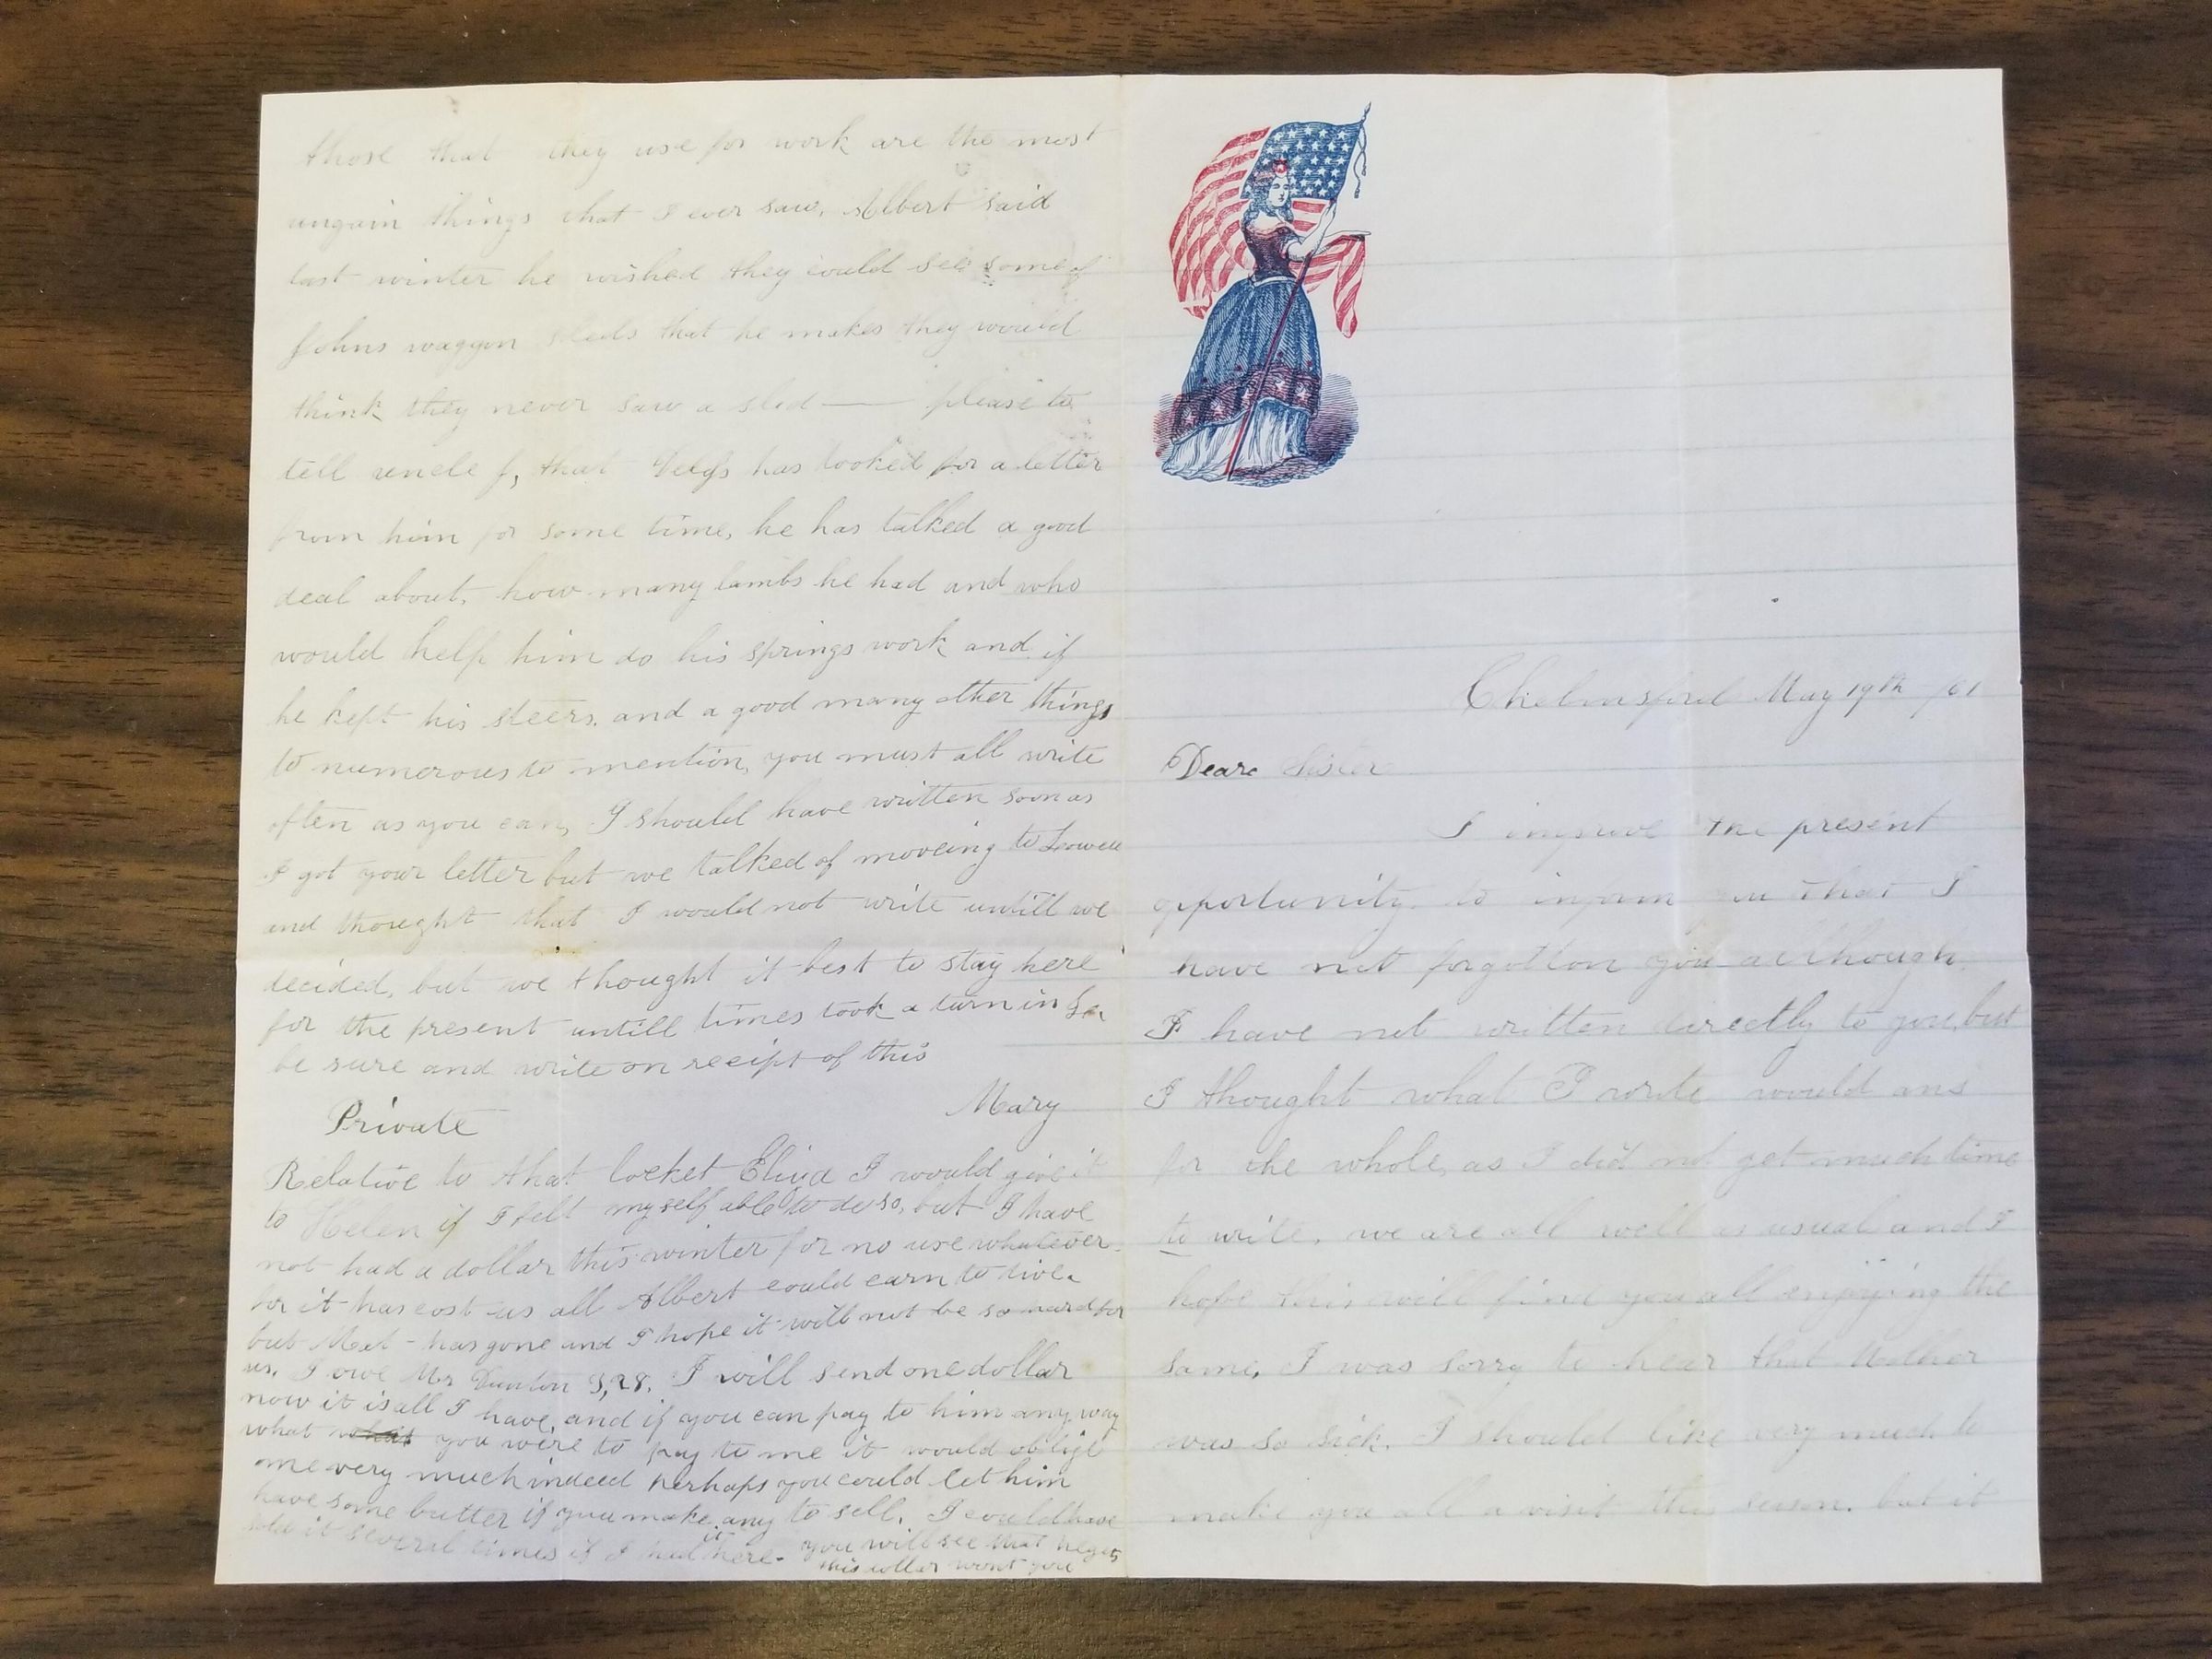 Chelmsford May 19th /61
Dear Sister
I improve the present
opportunity to inform you that I
have not forgotton you although
I have not written directly to you, but
I thought what I wrote would ans
for the whole, as I did not get much time
to write, we are all well as usual and I
hope this will find you all enjoying the
same, I was sorry to hear that Mother
was so sick. I should like very much to
make you all a visit this season. but it
those that they use for work are the most
ungain things that I ever saw, Albert said
last winter he wished they could see some of
Johns waggon sleds that he makes they would
think they never saw a sled — please to
tell uncle J, that has looked for a letter
from him for some time, he has talked a good
deal about, how many lambs he had and who
would help him do his springs work and if
he kept his steers, and a good many other things
to numerous to mention, you must all write
often as you can, I should have written soon as
I got your letter but we talked of moveing to Lowell
and thought that I would not write untill we
decided, but we thought it best to stay here
for the present untill times took a turn in
be sure and write on receipt of this
Mary
Private
Relative to that locket I would give it
to Helen if I felt myself able to do so, but I have
not had a dollar this winter for no use whatever
for it has cost us all Albert could earn to live
but has gone and I hope it will not be so hard for
us. I owe Mr 3,28. I will send one dollar
now it is all I have, and if you can pay to him any way
what what you were to pay to me it would oblige
me very much indeed perhaps you could let him
have some butter if you make any to sell, I could have
sold it several times if I had it here. you will see that he gets
this dollar wont you